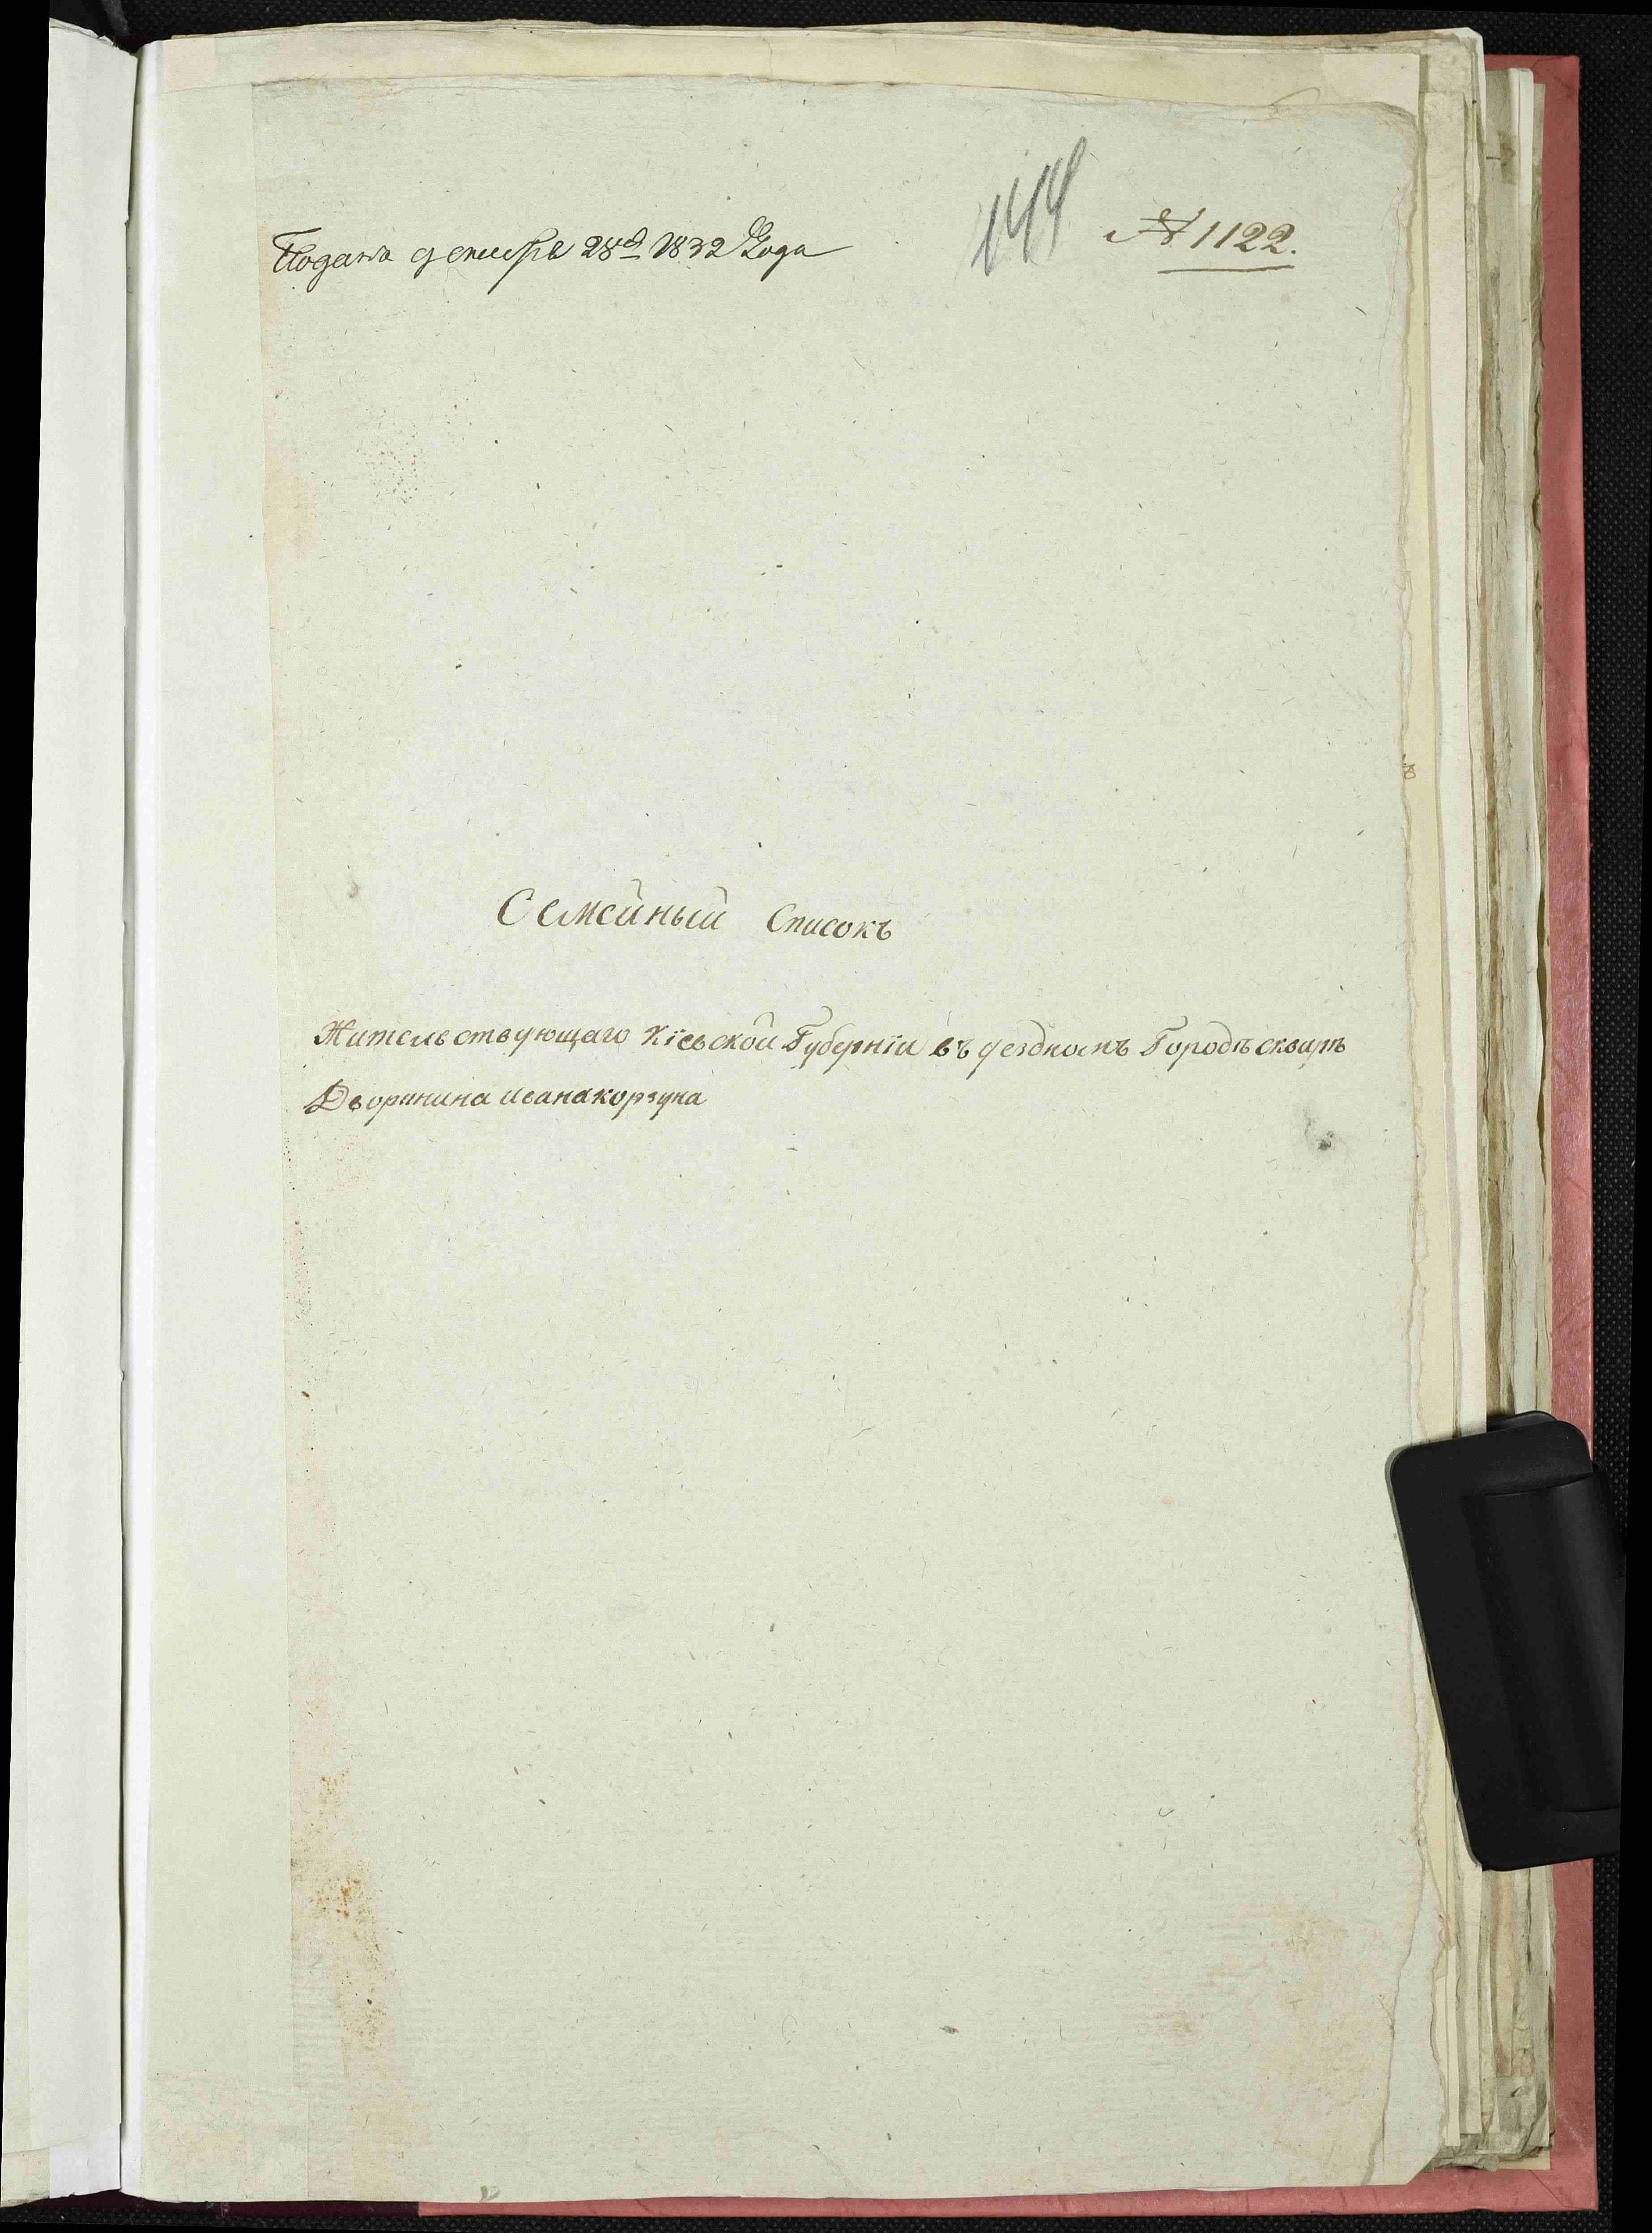 Подана декабря 28д 1832 Года
144
№ 1122.
Семейный Списокъ
Жительствующаго Кіевской Губерніи въ уездномъ Городѣ сквирѣ
Дворянина ивана корзуна